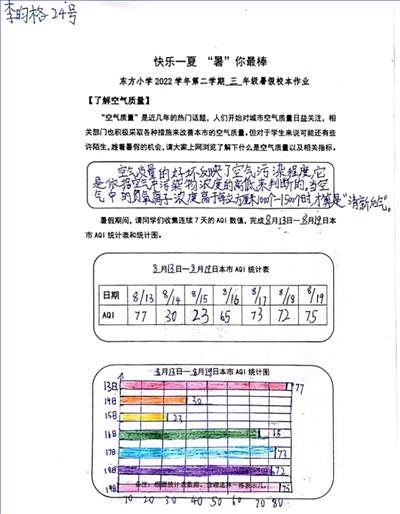 李昀格 24号
快乐一夏 “暑”你最棒
东方小学2022学年第二学期 三 年级暑假校本作业
【了解空气质量】
“空气质量”是近几年的热门话题,人们开始对城市空气质量日益关注,相
关部门也积极采取各种措施来改善本市的空气质量。但对于学生来说可能还有些
许陌生,趁着暑假的机会,请大家上网浏览了解下什么是空气质量以及相关指标。
空气质量的好坏反映了空气污染程度,它
是依据空气中污染物浓度的高低来判断的,当空
气中的负氧离子浓度高于每立方厘米1000个—1500个时,才算是“清新”空气。
暑假期间,请同学们收集连续7天的AQI数值,完成8月13日—8月19日本
市AQI统计表和统计图。
8月13日—8月19日本市AQI统计表
日期 8/13 8/14 8/15 8/16 8/17 8/18 8/19
AQI 77 30 23 65 73 72 75
8月13日—8月19日本市AQI统计图
13日 77
14日 30
15日 23
16日 65
17日 73
18日 72
19日 75
备注:根据统计表数据,合理选择一格表示几。
10 20 30 40 50 60 70 80